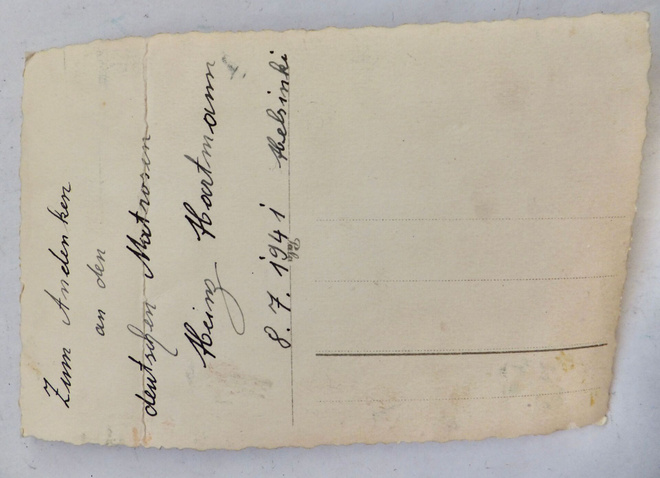 Zum Andenken
an den
deutschen Matrosen
Heinz Hartmann
8. 7. 1941 Helsinki